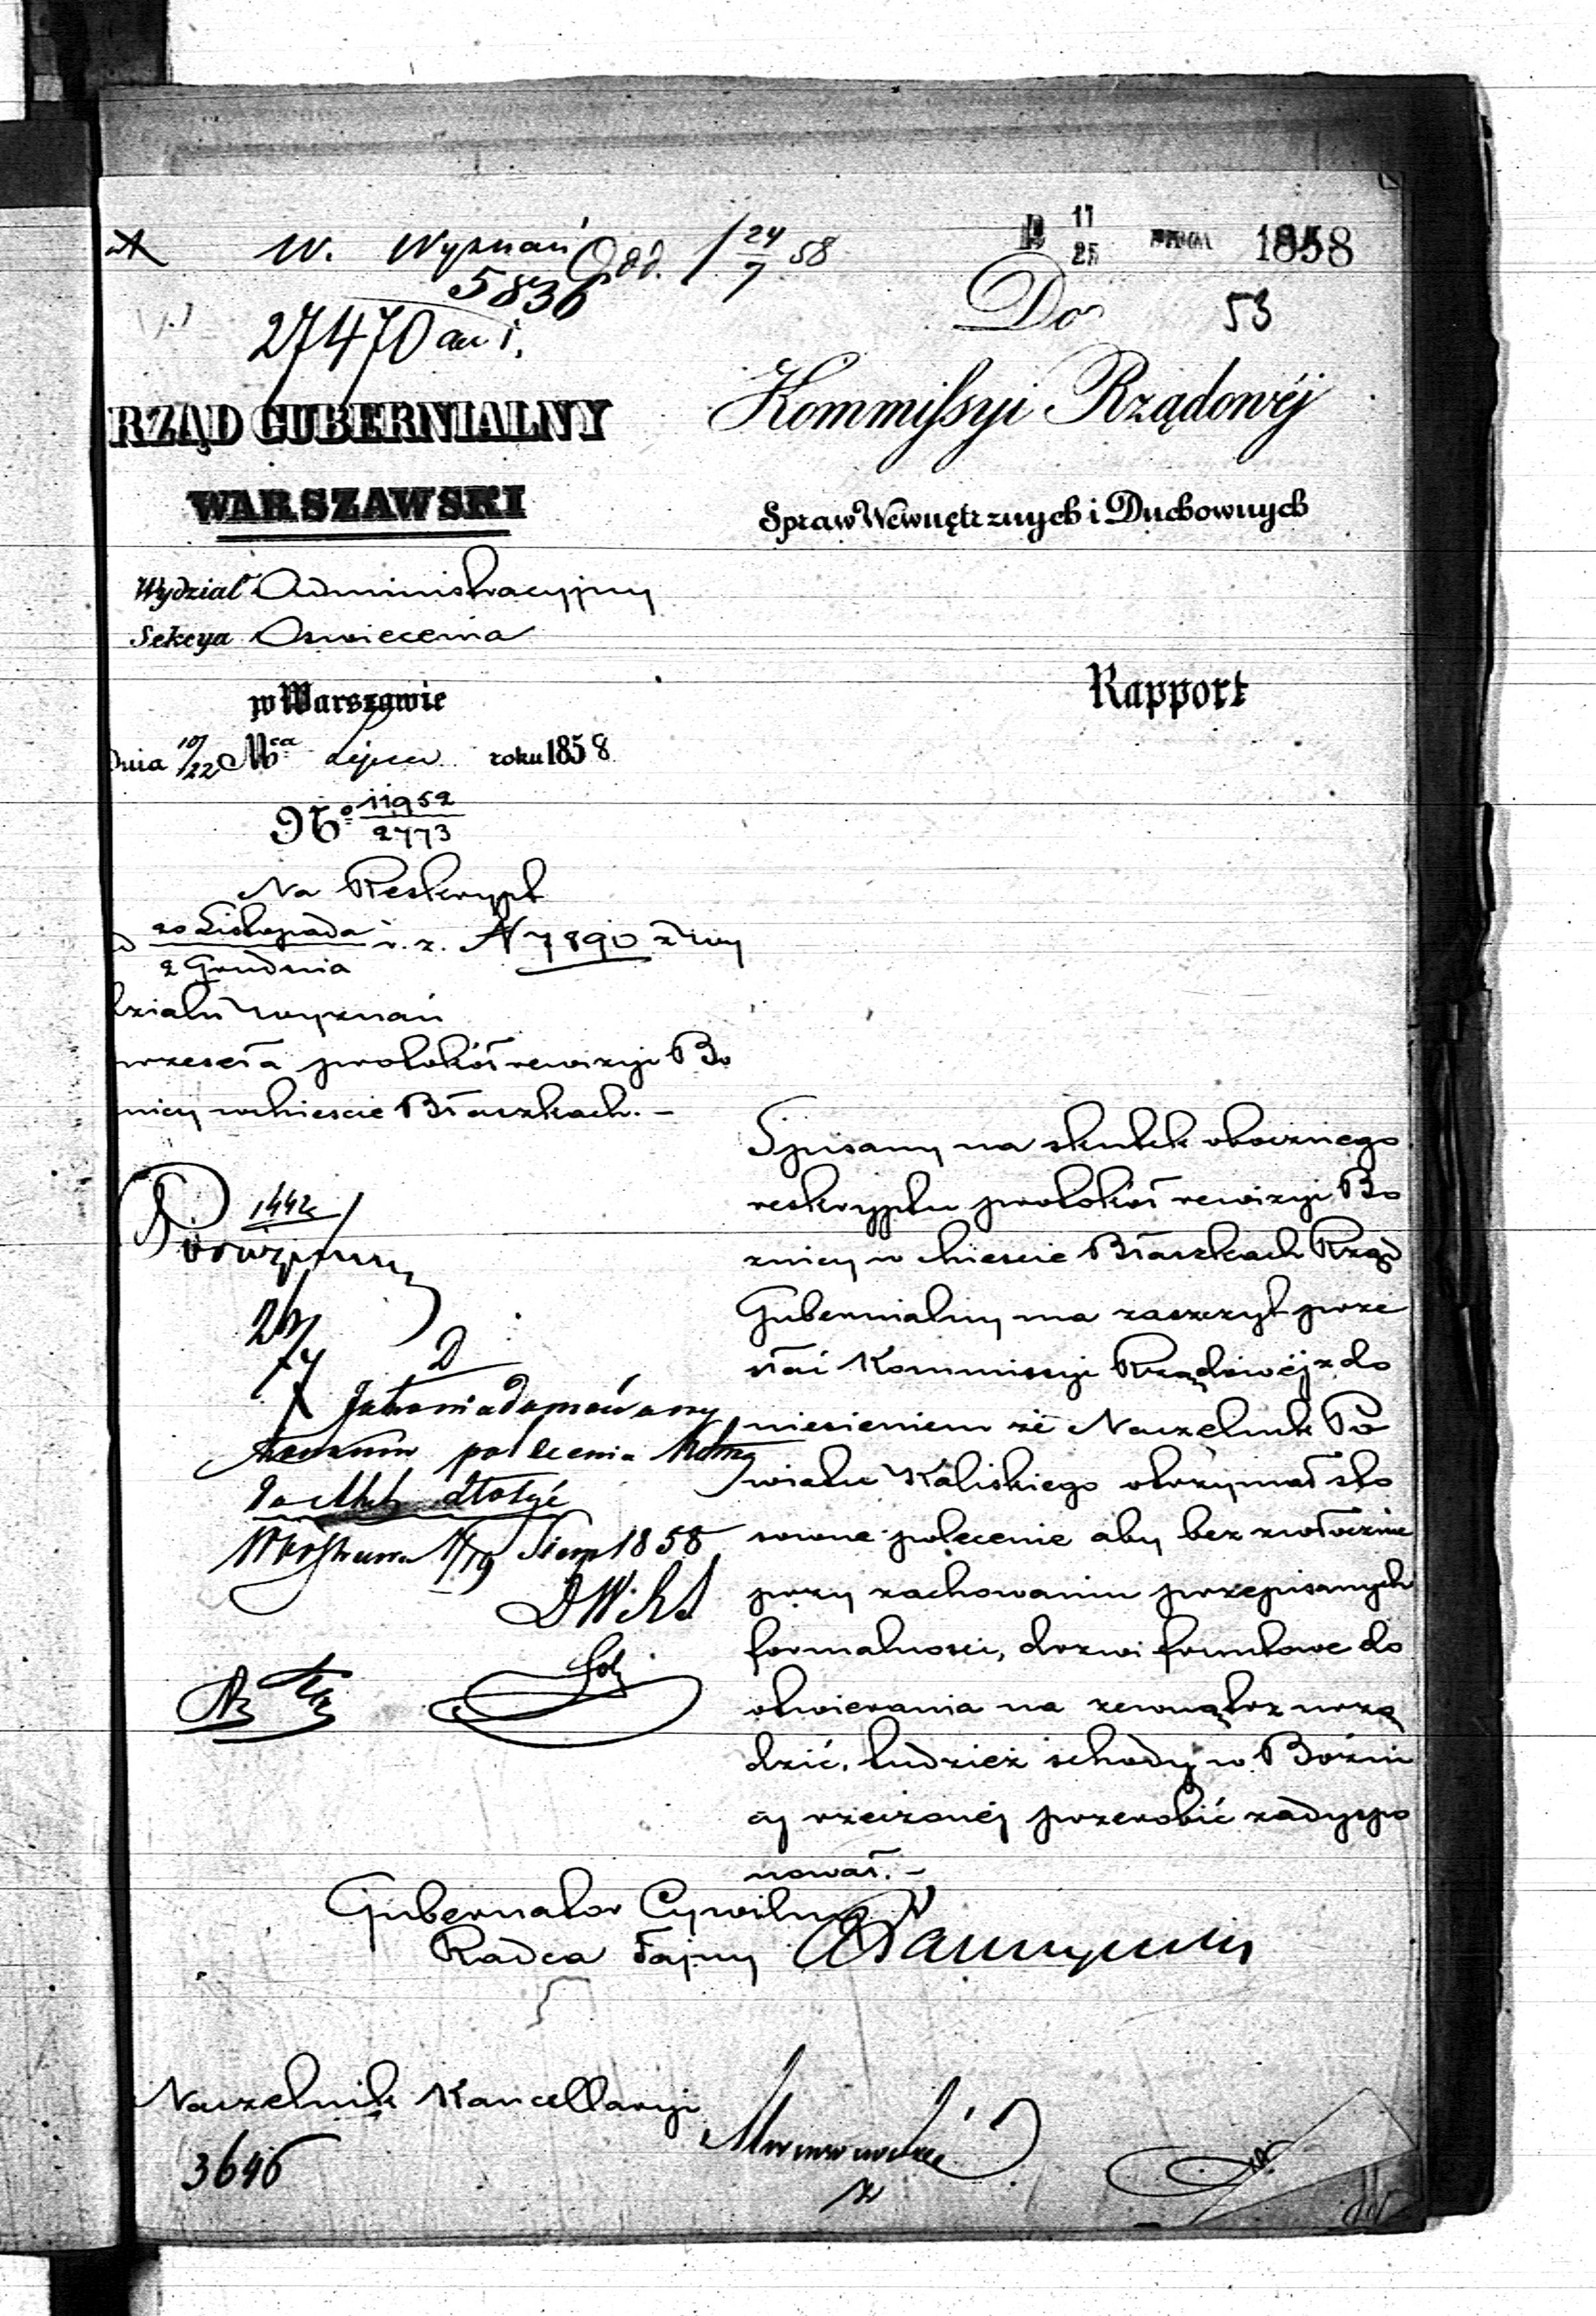 W. Wyznań Odd. 24/7 58
5836
27470
11
25
1858
Do
53
RZĄD GUBERNIALNY
WARSZAWSKI
Kommissyi Rządowéj
Spraw Wewnętrznych i Duchownych
Wydział Administracyjny
Sekcya Oswiecenia
Rapport
w Warszawie
Dnia 10/22 Mca Lipca roku 1858
No 11952/2773
Na Reskrypt
d 20 Listopada / 2 Grudnia r. z. N 7890 z Wy
działu wyznań
przeseła protokół rewizyi Bo
nicy w Mieście Błaszkach. –
Spisany na skutek obocznego
reskryptu protokół rewizyi Bo
znicy w Mieście Błaszkach Rząd
Gubernialny ma zaszczyt prze
słać Kommissyi Rządowéj z do
niesieniem że Naczelnik Po
wiatu Kaliskiego otrzymał sto
sowne polecenie aby bezzwłocznie
przy zachowaniu przepisanych
formalności, drzwi frontowe do
otwierania na zewnątrz urzą
dzić, tudzież schody w Bóżni
cy rzeczonéj przerobić zadyspo
nował. –
1442
26/7
D
polecenia
do Akt złożyć
Warszawa 7/19 Sierp 1858
Gubernator Cywilny
Radca Tajny
Naczelnik Kancellaryi
3646